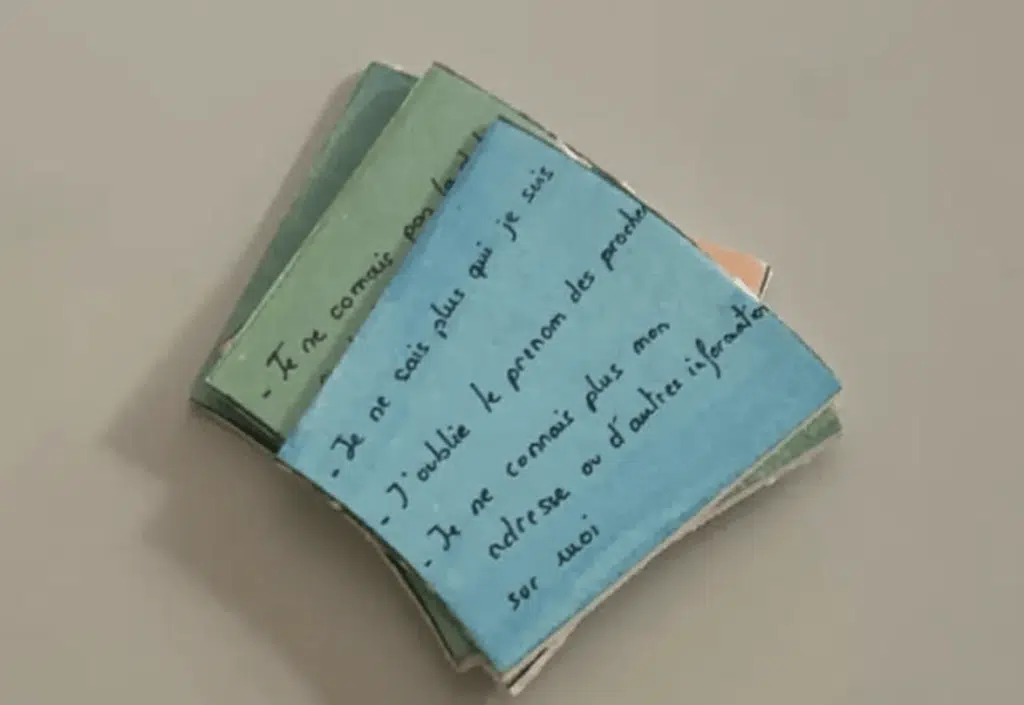 - Je ne comais pas la d
- Je ne sais plus qui je suis
- J'oublie le prenom des proches
- Je ne connais plus mon
adresse ou d'autres information
sur moi